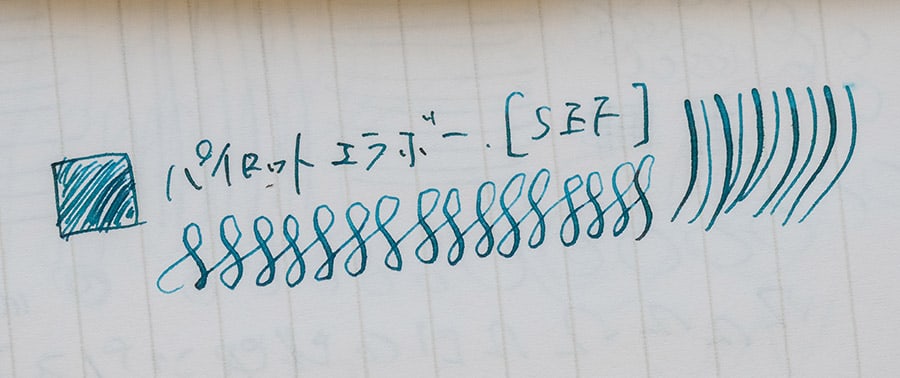 パイロット エラボー. [SEF]